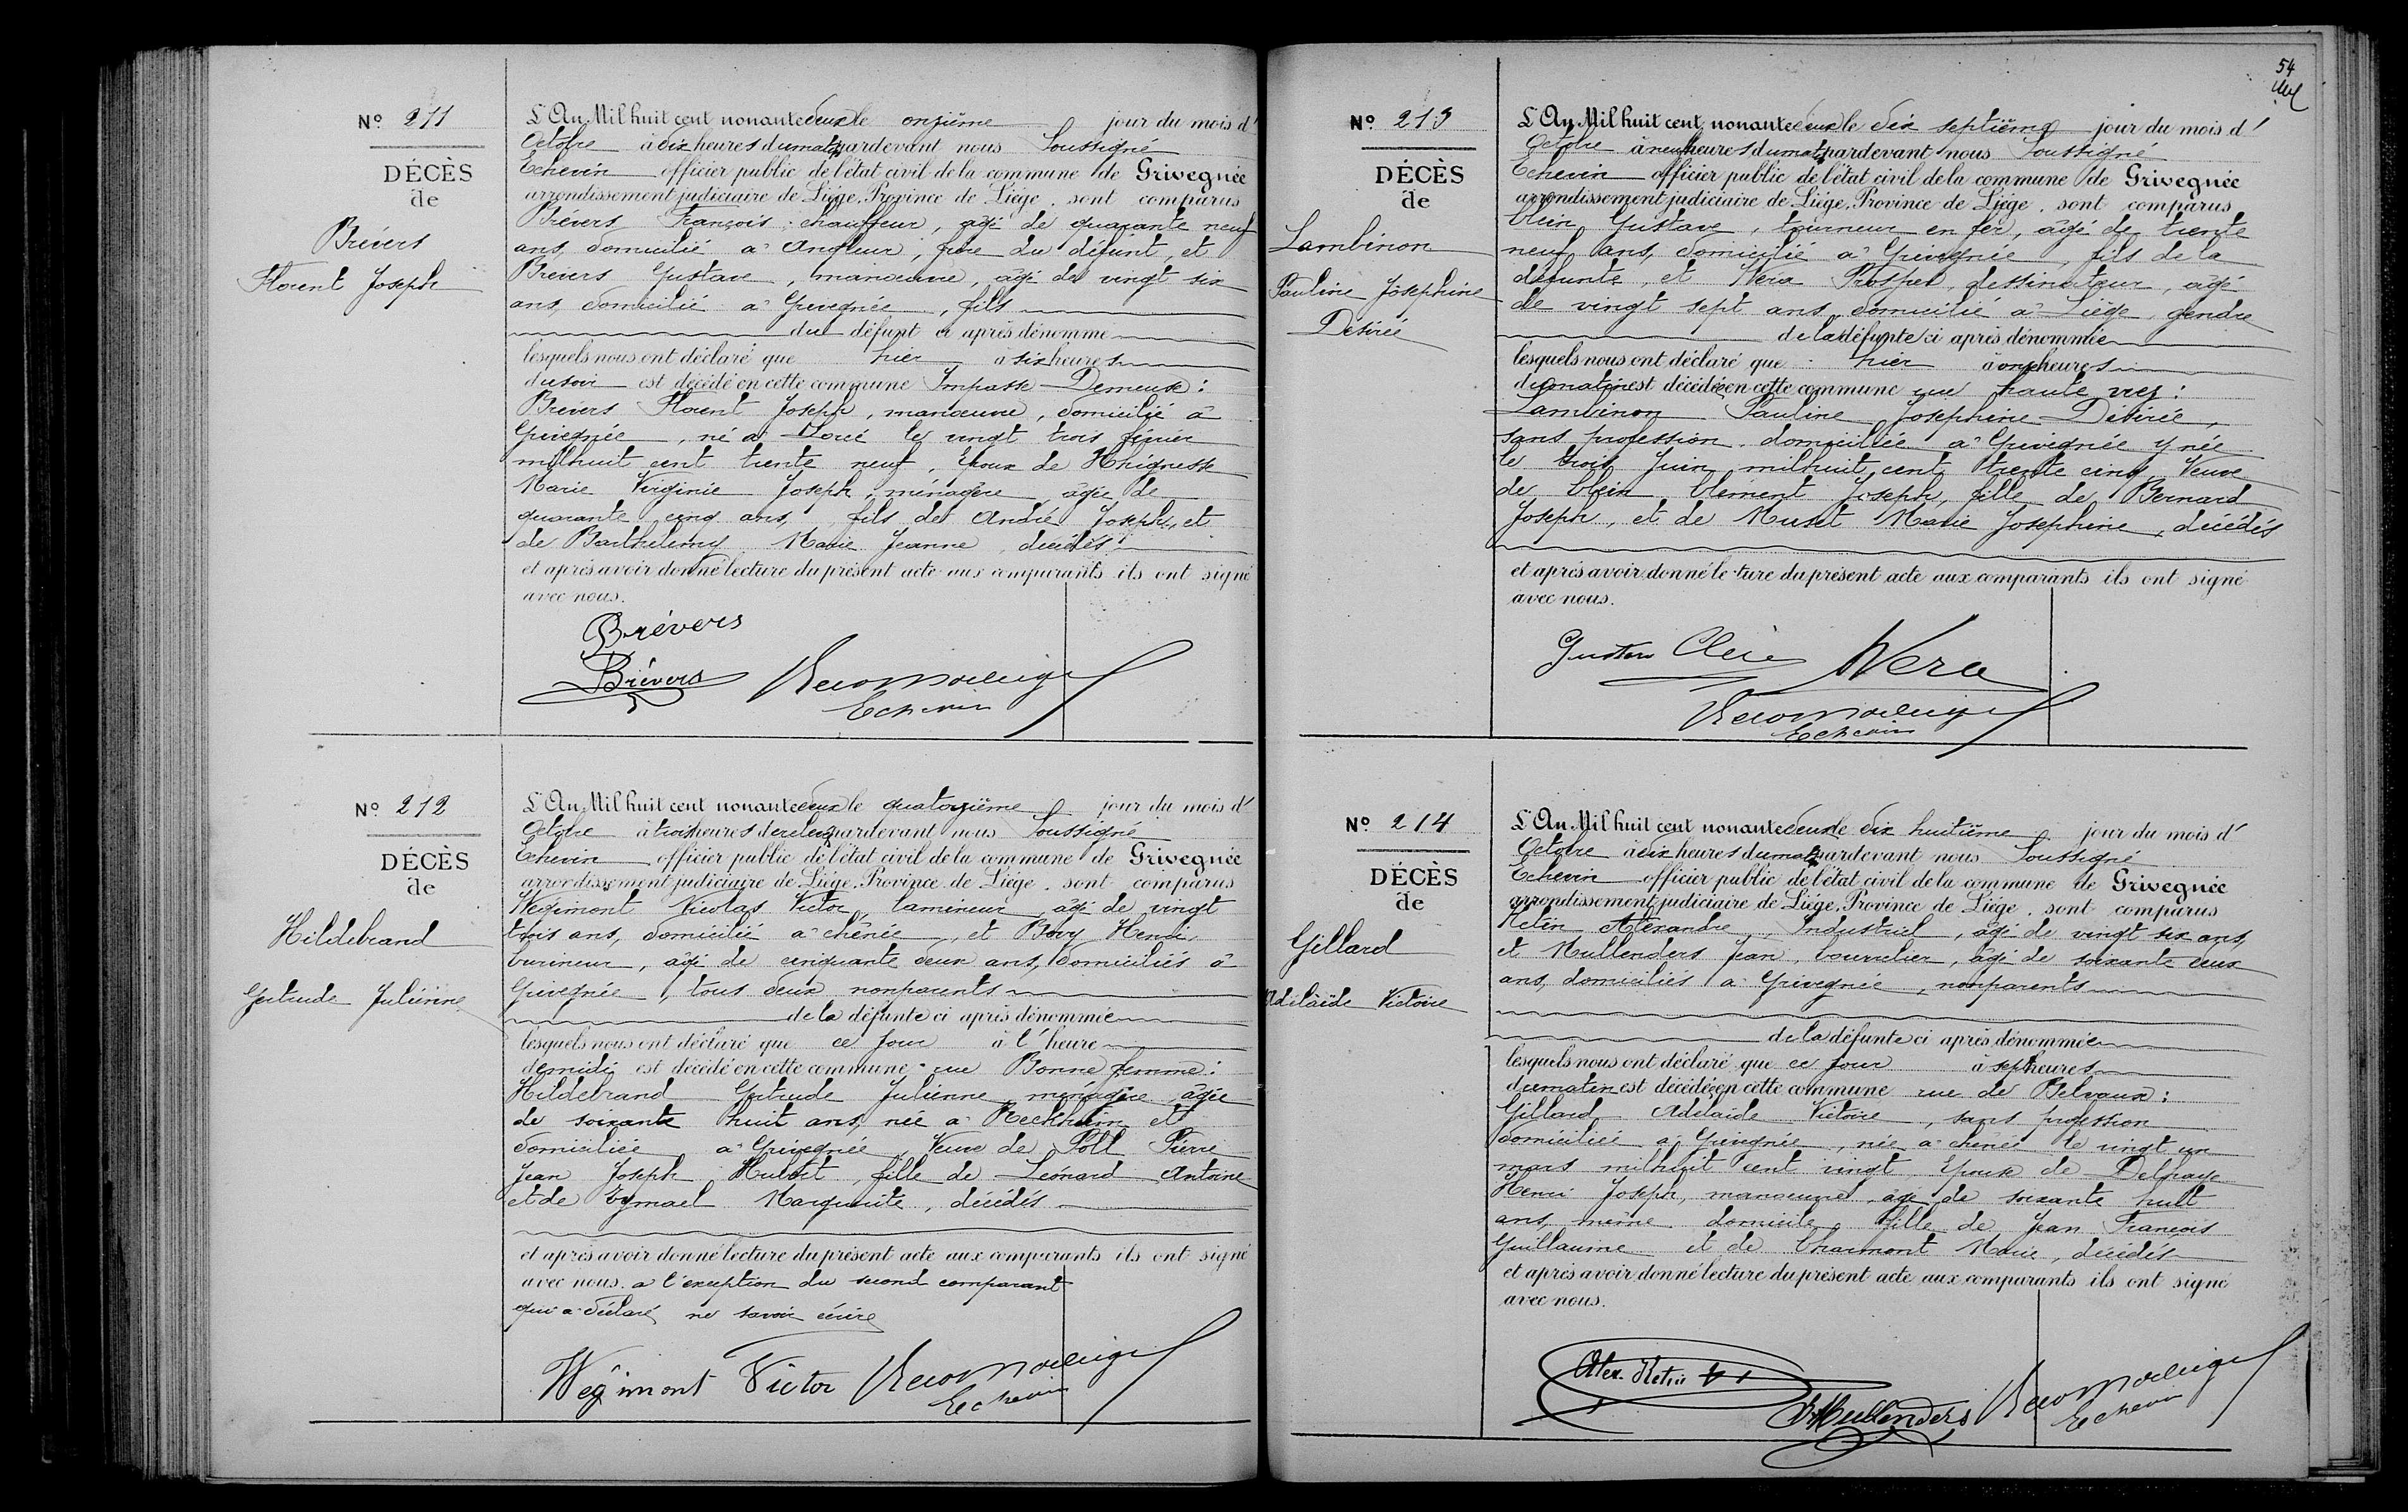 Nº 211
DÉCÈS
de
Brévers
Florent Joseph
L'An Mil huit cent nonante deux le onzième jour du mois d'
Octobre à dix heures du matin pardevant nous Soussigné
Echevin officier public de l'état civil de la commune de Grivegnée
arrondissement judiciaire de Liége, Province de Liége, sont comparus
Brévers François, chauffeur, âgé de quarante neuf
ans, domicilié à Angleur, frère du défunt, et
Brévers Gustave, manœuvre, âgé de vingt six
ans, domicilié à Grivegnée, fils
du défunt ci après dénommé
lesquels nous ont déclaré que hier à six heures
du soir est décédé en cette commune Impasse Demeuse :
Brévers Florent Joseph, manœuvre, domicilié à
Grivegnée, né à Louf le vingt trois février
milhuit cent trente neuf, Epoux de
Marie Virginie Joseph, ménagère, âgée de
quarante cinq ans, fils de André Joseph, et
de Barthelemy Marie Jeanne, décédés
et après avoir donné lecture du présent acte aux comparants ils ont signé
avec nous.
Brévers
Brévers
Echevin
Nº 212
DÉCÈS
de
Hildebrand
Gertrude Julienne
L'An Mil huit cent nonante deux le quatorzième jour du mois d'
Octobre à trois heures de relevée pardevant nous Soussigné
Echevin officier public de l'état civil de la commune de Grivegnée
arrondissement judiciaire de Liége, Province de Liége, sont comparus
Wégimont Nicolas Victor, lamineur, âgé de vingt
trois ans, domicilié à chênée, et Bovy Henri,
burineur, âgé de cinquante deux ans, domiciliés à
Grivegnée, tous deux nonparents
de la défunte ci après dénommée
lesquels nous ont déclaré que ce jour à l'heure
de midi est décédé en cette commune rue Bonne femme :
Hildebrand Gertrude Julienne, ménagère âgée
de soixante huit ans, née à Reckheim et
domiciliée à Grivegnée, Veuve de Poll Pierre
Jean Joseph Hubert, fille de Léonard Antoine
et de Eymael Marguerite, décédés
et après avoir donné lecture du présent acte aux comparants ils ont signé
avec nous. a l'exception du second comparant
qui a déclaré ne savoir écrire
Wégimont Victor
Echevin
54
Nº 213
DÉCÈS
de
Lambinon
Pauline Joséphine
Désirée
L'An Mil huit cent nonante deux le dix septième jour du mois d'
Octobre à neuf heures du matin pardevant nous Soussigné
Echevin officier public de l'état civil de la commune de Grivegnée
arrondissement judiciaire de Liége, Province de Liége, sont comparus
Clein Gustave, tourneur en fer, âgé de trente
neuf ans, domicilié à Grivegnée, fils de la
défunte, et Wéra Prosper, dessinateur, âgé
de vingt sept ans, domicilié à Liége, gendre
de la défunte ci après dénommée
lesquels nous ont déclaré que hier à onze heures
du matin est décédée en cette commune rue haute wez :
Lambinon Pauline Josephine Désirée,
sans profession, domiciliée à Grivegnée y née
le trois Juin milhuit cent trente cinq, Veuve
de Clein Clément Joseph, fille de Bernard
Joseph, et de Muset Marie Josephine, décédés
et après avoir donné lecture du présent acte aux comparants ils ont signé
avec nous.
Gustave Clein Wera
Echevin
Nº 214
DÉCÈS
de
Gillard
Adélaïde Victoire
L'An Mil huit cent nonante deux le dix huitième jour du mois d'
Octobre à dix heures du matin pardevant nous Soussigné
Echevin officier public de l'état civil de la commune de Grivegnée
arrondissement judiciaire de Liége, Province de Liége, sont comparus
Ketin Alexandre, Industriel, âgé de vingt six ans,
et Mullenders Jean, bourrelier, âgé de soixante deux
ans, domiciliés à Grivegnée, nonparents
de la défunte ci après dénommée
lesquels nous ont déclaré que ce jour à sept heures
du matin est décédée en cette commune rue de Belvaux :
Gillard Adelaïde Victoire, sans profession
domiciliée à Grivegnée, née à chenée le vingt un
mars milhuit cent vingt, Epouse de Delhaye
Henri Joseph, manœuvre, âgé de soixante huit
ans, même domicile, fille de Jean François
Guillaume et de Charmont Marie, décédés
et après avoir donné lecture du présent acte aux comparants ils ont signé
avec nous.
Alex. Ketin
Mullenders
Echevin